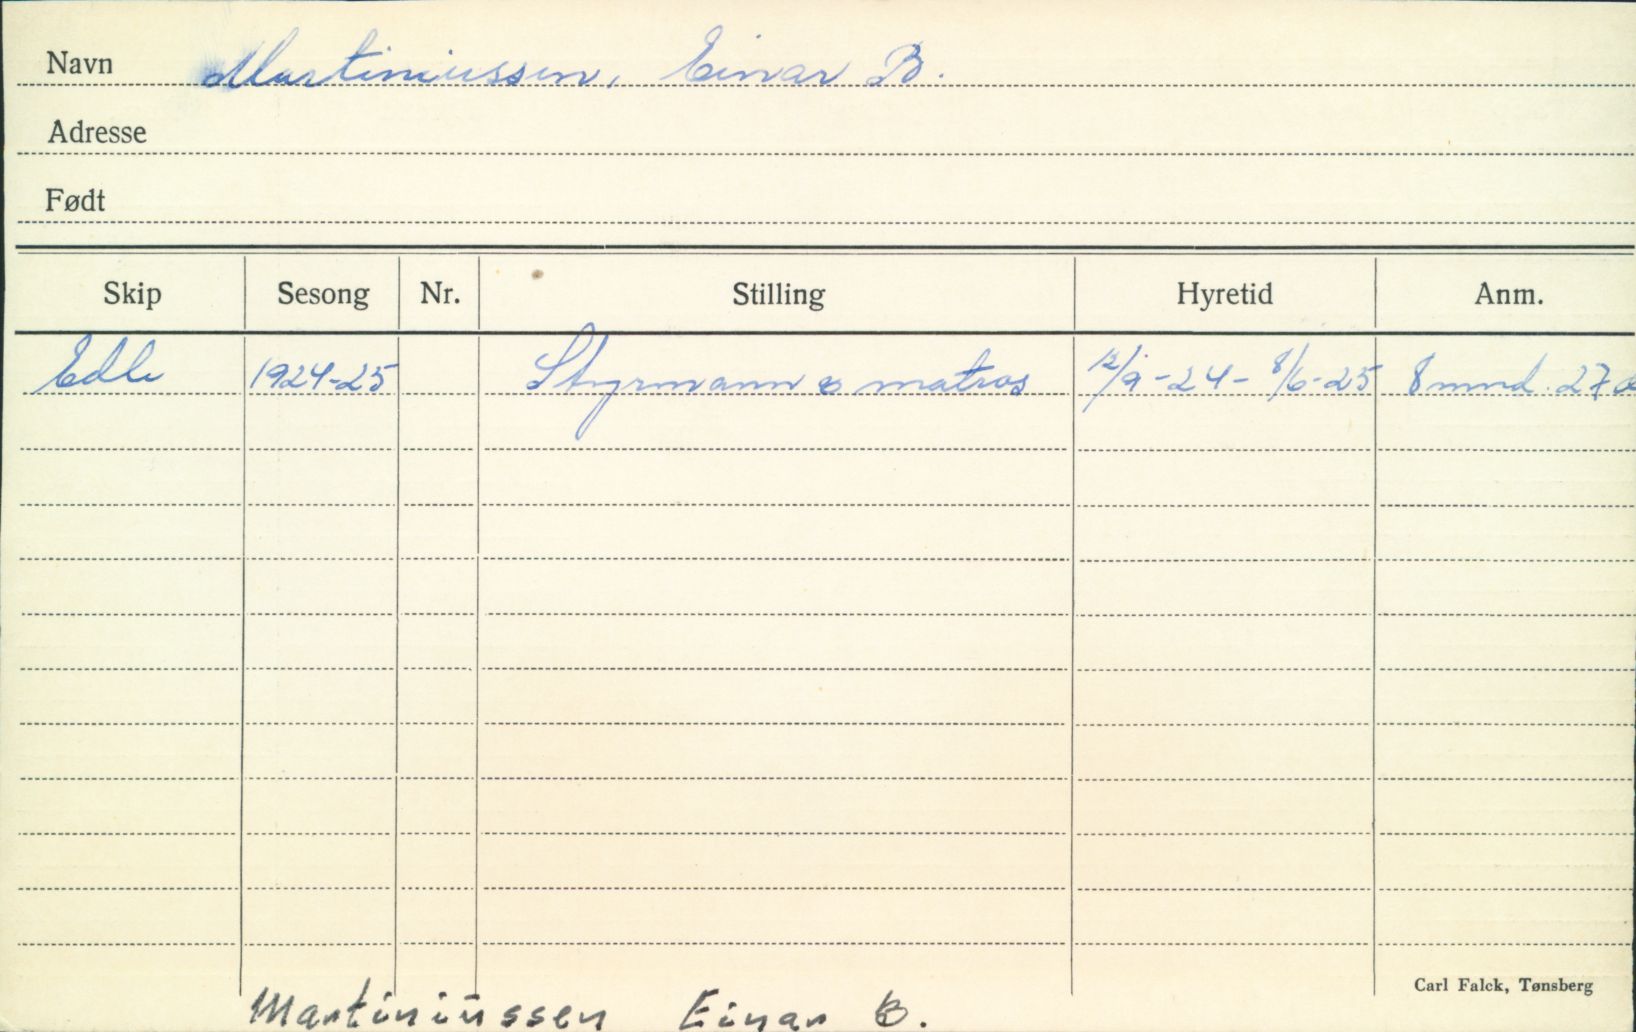 Navn Martiniussen, Einar B.
Adresse
Født
Skip Sesong Nr. Stilling Hyretid Anm.
Edle 1924-25 Styrmann o matros 12/9-24 - 8/6-25 8 mnd. 27 d
Carl Falck, Tønsberg
Martiniussen Einar B.